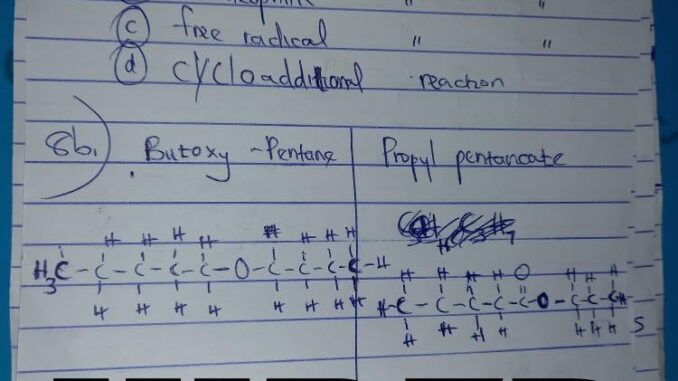 (c) free radical " "
(d) cycloadditional reaction
8b.) Butoxy - Pentane
Propyl pentanoate
H H H H H H H H
H₃C - C - C - C - C - O - C - C - C - C - H
H H H H H H H H
H H H H O H H H
H - C - C - C - C - C - O - C - C - C H
H H H H H H H